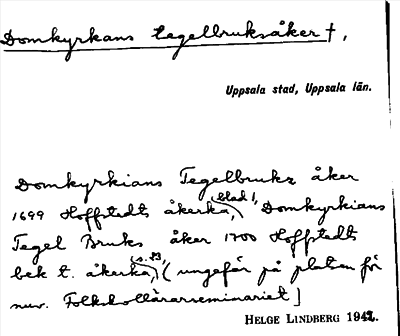 Domkyrkans tegelbruksåker †,
Uppsala stad, Uppsala län.
Domkyrkians Tegelbrukz åker
1699 Hoffstedts åkerka, blad 1, Domkyrkians
Tegel Bruks åker 1700 Hoffstedts
bek t. åkerka, (s. 13, (ungefär på platsen för
nuv. Folkskollärarseminariet]
HELGE LINDBERG 1942.